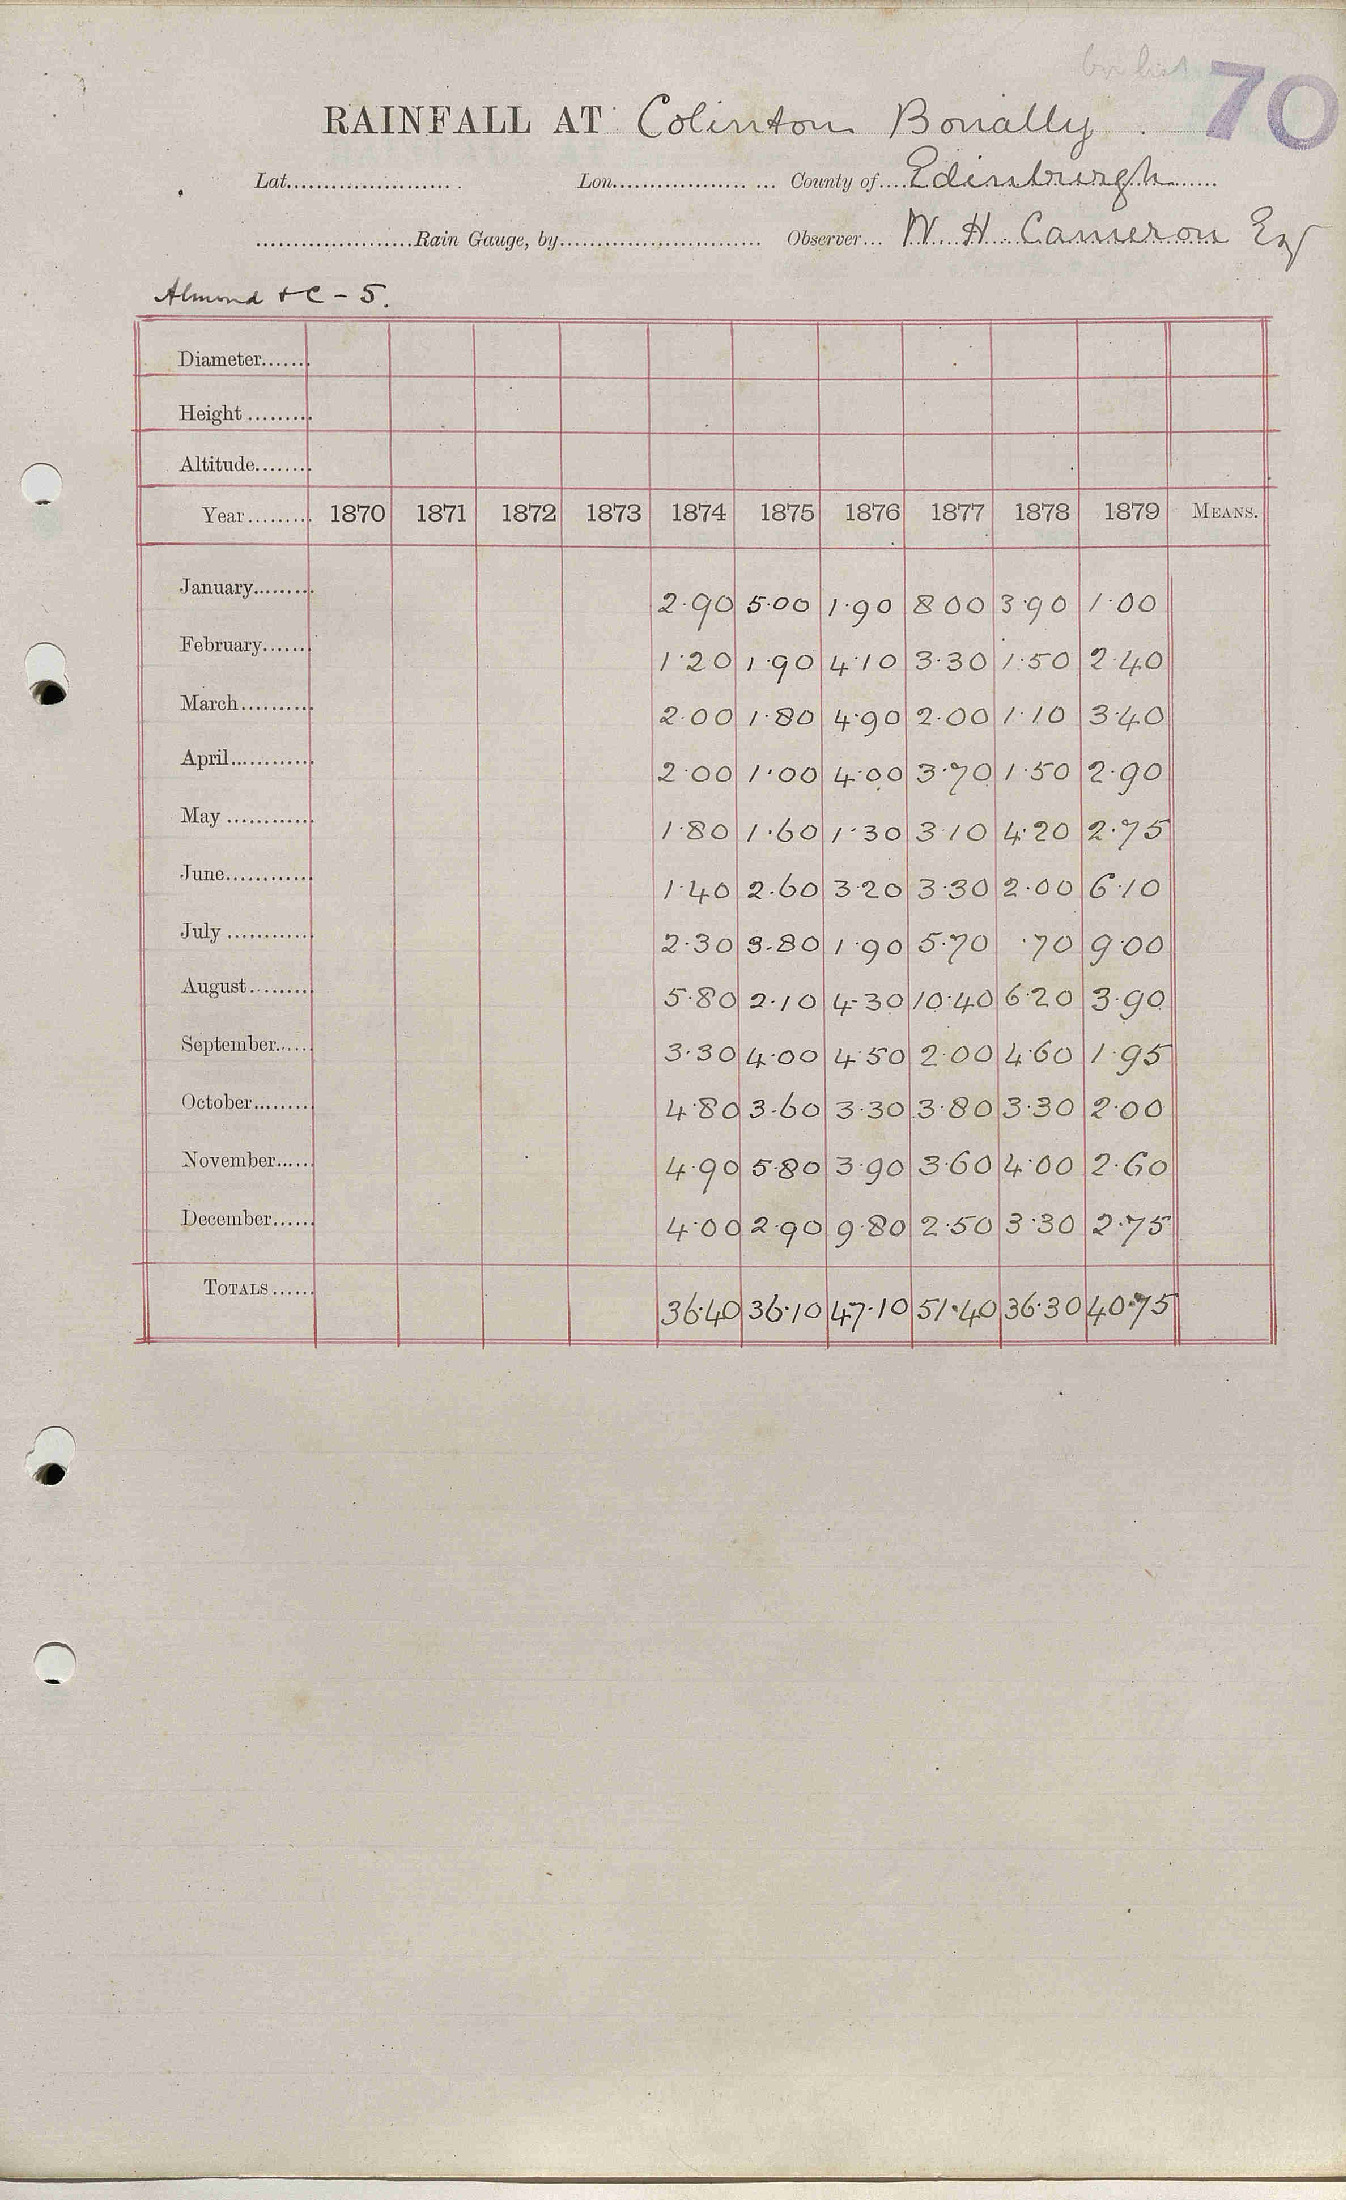 70
RAINFALL AT Colinton Bonally.
Lat. Lon. County of Edinburgh
Rain Gauge, by Observer W. H. Cameron Esq
Almond & C - 5.
Diameter
Height
Altitude
Year 1870 1871 1872 1873 1874 1875 1876 1877 1878 1879 MEANS.
January 2.90 5.00 1.90 8.00 3.90 1.00
February 1.20 1.90 4.10 3.30 1.50 2.40
March 2.00 1.80 4.90 2.00 1.10 3.40
April 2.00 1.00 4.00 3.70 1.50 2.90
May 1.80 1.60 1.30 3.10 4.20 2.75
June 1.40 2.60 3.20 3.30 2.00 6.10
July 2.30 3.80 1.90 5.70 .70 9.00
August 5.80 2.10 4.30 10.40 6.20 3.90
September 3.30 4.00 4.50 2.00 4.60 1.95
October 4.80 3.60 3.30 3.80 3.30 2.00
November 4.90 5.80 3.90 3.60 4.00 2.60
December 4.00 2.90 9.80 2.50 3.30 2.75
TOTALS 36.40 36.10 47.10 51.40 36.30 40.75